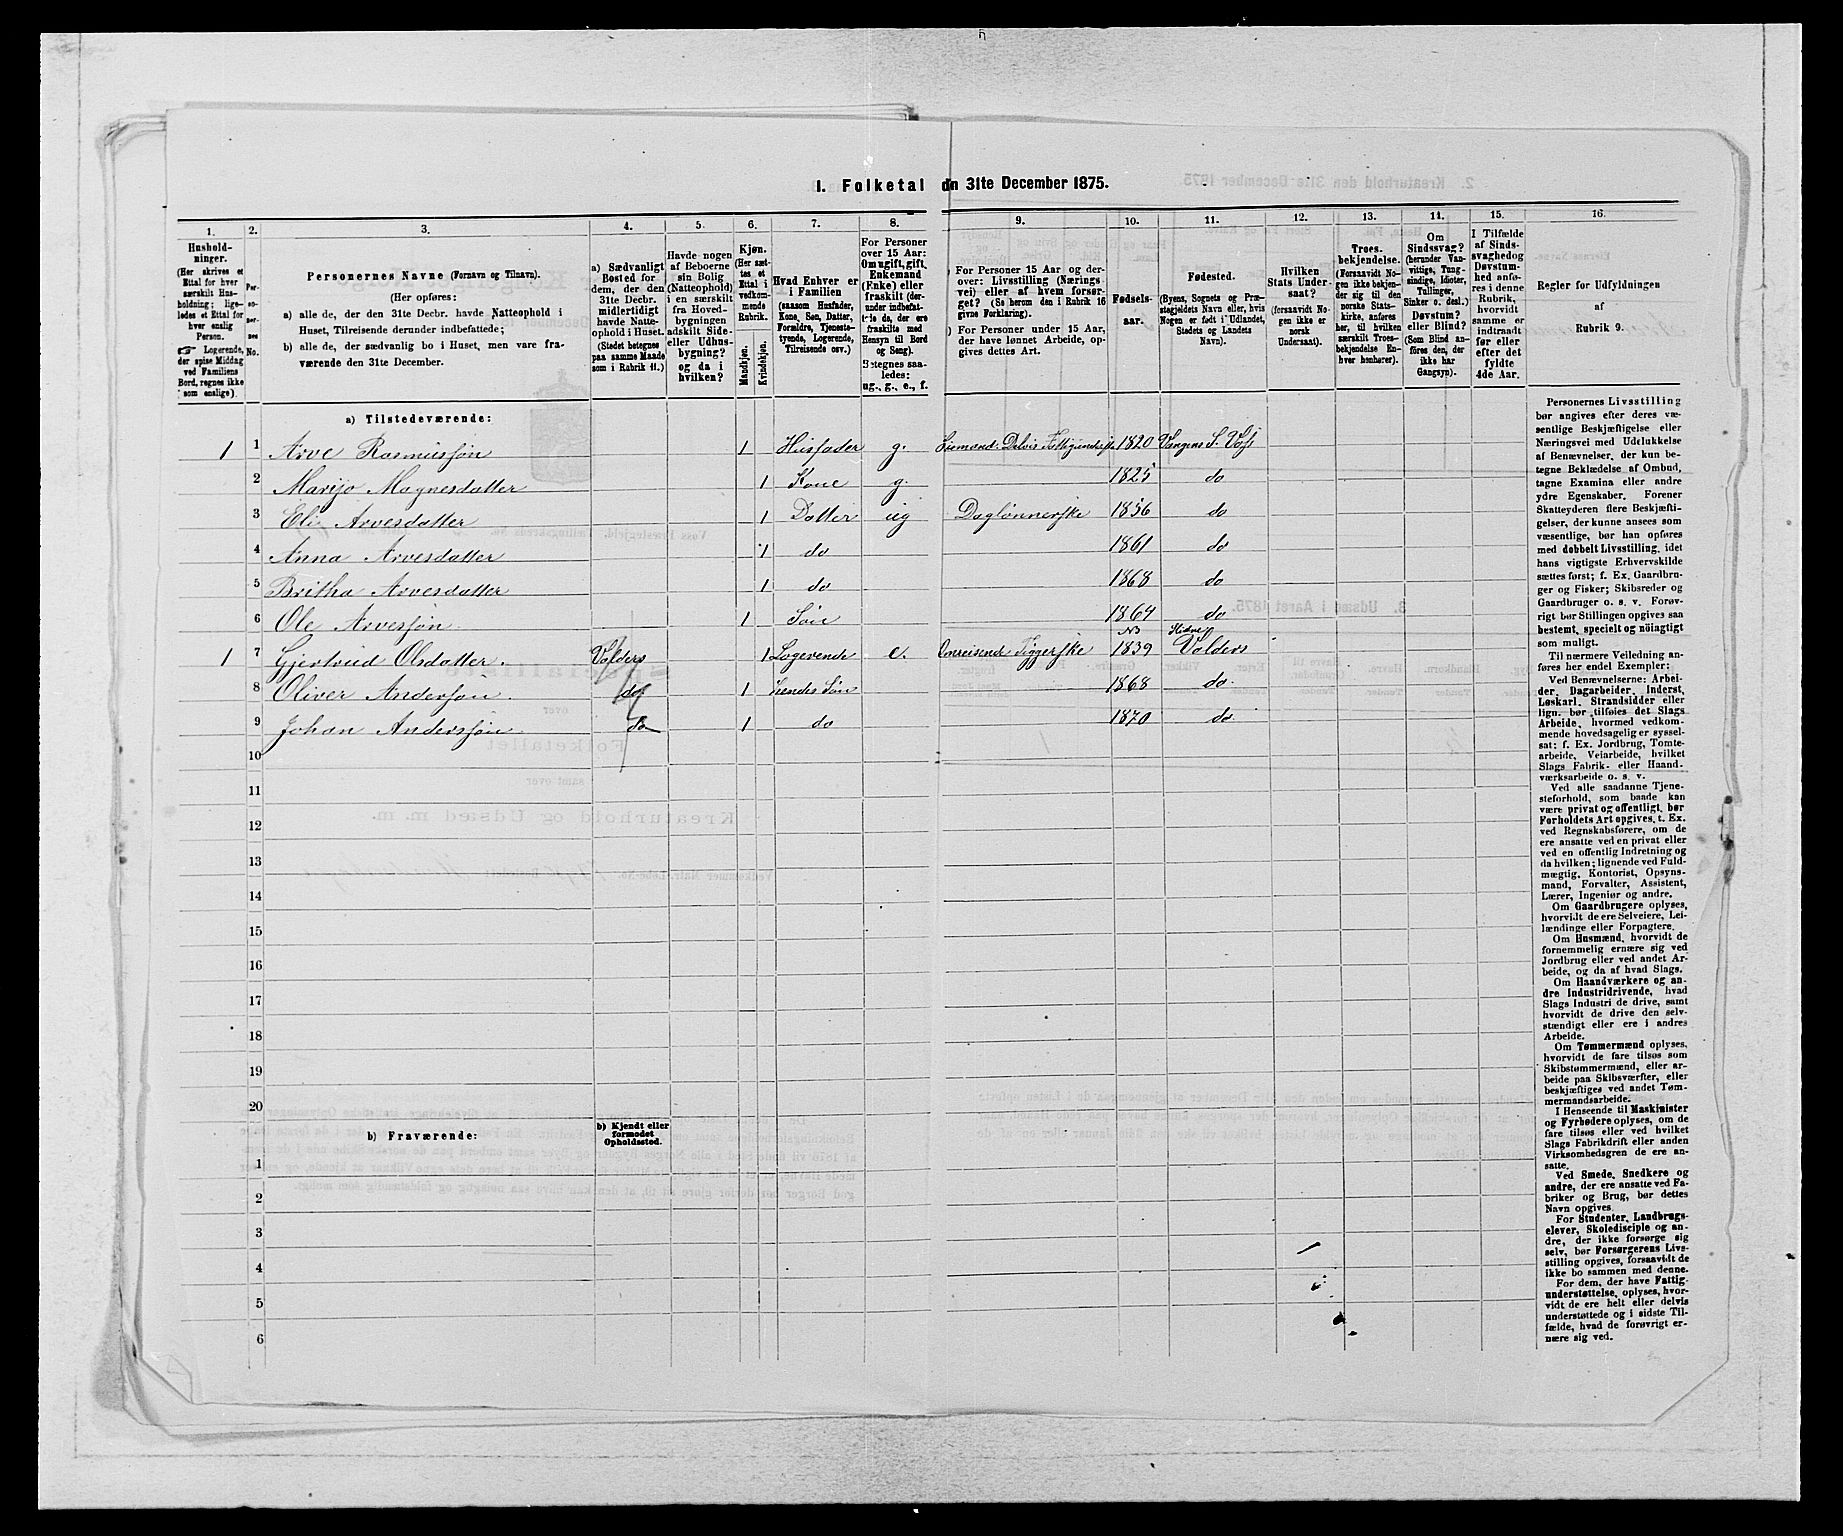 1. Folketal den 31te December 1875.
1. 2. 3. 4. 5. 6. 7. 8. 9. 10. 11. 12. 13. 14. 15. 16.
Husholdninger.
(Her skrives et
Ettal for hver
særskilt Husholdning;
ligeledes et Ettal for
hver enslig
Person.
☞ Logerende,
der spise Middag
ved Familiens
Bord, regnes ikke
som enslige).
Personernes No.
Personernes Navne (Fornavn og Tilnavn).
(Her opføres:
a) alle de, der den 31te Decbr. havde Natteophold i
Huset, Tilreisende derunder indbefattede;
b) alle de, der sædvanlig bo i Huset, men vare fraværende
den 31te December.
a) Sædvanligt
Bosted for
dem, der den
31te Decbr.
midlertidigt
havde Natteophold
i Huset.
(Stedet betegnes
paa samme Maade
som i Rubrik 11.)
Havde nogen
af Beboerne
sin Bolig
(Natteophold)
i en særskilt
fra Hovedbygningen
adskilt Side-
eller Udhusbygning?
og da i
hvilken?
Kjøn.
(Her sættes
et
Ettal i
vedkommende
Rubrik.
Mandkjøn.
Kvindekjøn.
Hvad Enhver er
i Familien
(saasom Husfader,
Kone, Søn, Datter,
Forældre, Tjenestetyende,
Logerende,
Tilreisende osv.)
For Personer
over 15 Aar:
Om ugift, gift,
Enkemand
(Enke) eller
fraskilt (derunder
indbefattede
da, der ere
fraskilte med
Hensyn til Bord
og Seng).
Betegnes saaledes:
ug., g., e., f.
) For Personer 15 Aar og derover:
Livsstilling (Næringsvei)
eller af hvem forsørget?
(Se herom den i Rubrik 16
givne Forklaring).
) For Personer under 15 Aar,
der have lønnet Arbeide, opgives
dettes Art.
Fødselsaar.
Fødested.
(Byens, Sognets og Præstegjeldets
Navn eller, hvis
Nogen er født i Udlandet,
Stedets og Landets
Navn).
Hvilken
Stats Undersaat?
(forsaavidt Nogen
ikke er
norsk
Undersaat).
Troesbekjendelse.
(Forsaavidt Nogen
ikke bekjender
sig til den
norske Statskirke,
anføres
her, til hvilken
særskilt Troesbekjendelse
Enhver
henhører).
Om
Sindssvag?
(herunder Vanvittige,
Tungsindige,
Idioter,
Tullinger,
Sinker o. desl.)
Døvstum?
eller Blind?
(Som Blind anføres
den, der
ikke har
Gangsyn).
I Tilfælde
af Sindssvaghed
og
Døvstumhed
anføres
i denne
Rubrik,
hvorvidt
samme er
indtraadt
før eller
efter det
fyldte
4de Aar.
Regler for Udfyldningen
af
Rubrik 9.
a) Tilstedeværende:
1 1 Arve Rasmussøn 1 Husfader g. 1820 Vangens S. Voss
2 Marijo Magnesdatter 1 Kone g. 1825 do
3 Eli Arvesdatter 1 Datter ug Daglønnerske 1856 do
4 Anna Arvesdatter 1 do 1861 do
5 Britha Arvesdatter 1 do 1868 do
6 Ole Arvessøn 1 Søn 1864 do
1 7 Gjertrud Olsdatter. Valders 1 Logerende e. Omreisende Tiggerske 1839 Valders
8 Oliver Anderssøn do 1 Hendes Søn 1868 do.
9 Johan Anderssøn. do 1 do 1870 do.
10
11
12
13
14
15
16
17
18
19
20
b) Fraværende:
b) Kjendt eller
formodet
Opholdssted.
1
2
3
4
5
6
Personernes Livsstilling
bør angives efter deres væsentlige
Beskjæftigelse eller
Næringsvei med Udelukkelse
af Benævnelser, der kun betegne
Beklædelse af Ombud,
tagne Examina eller andre
ydre Egenskaber. Forener
Skatteyderen flere Beskjæftigelser,
der kunne ansees som
væsentlige, bør han opføres
med dobbelt Livsstilling, idet
hans vigtigste Erhvervskilde
sættes først; f. Ex. Gaardbruger
og Fisker; Skibsreder og
Gaardbruger o. s. v. Forøvrigt
bør Stillingen opgives saa
bestemt, specielt og nöiagtigt
som muligt.
Til nærmere Veiledning anføres
her endel Exempler:
Ved Benævnelserne: Arbeider,
Dagarbeider, Inderst,
Løskarl, Strandsidder eller
lign. bør tilføies det Slags
Arbeide, hvormed vedkommende
hovedsagelig er sysselsat;
f. Ex. Jordbrug, Tomtearbeide,
Veiarbeide, hvilket
Slags Fabrik- eller Haandværksarbeide
o. s. v.
Ved alle saadanne Tjenesteforhold,
som baade kan
være privat og offentligt, bør
Forholdets Art opgives, t. Ex.
ved Regnskabsførere, om de
ere ansatte ved en privat eller
ved en offentlig Indretning og
da hvilken; lignende ved Fuldmægtig,
Kontorist, Opsynsmand,
Forvalter, Assistent,
Lærer, Ingeniør og andre.
Om Gaardbrugere oplyses,
hvorvidt de ere Selveiere, Leilændinge
eller Forpagtere.
Om Husmænd, hvorvidt de
fornemmelig ernære sig ved
Jordbrug eller ved andet Arbeide,
og da af hvad Slags.
Om Haandværkere og andre
Industridrivende, hvad
Slags Industri de drive, samt
hvorvidt de drive den selvstændigt
eller ere i andres
Arbeide.
Om Tømmermænd oplyses,
hvorvidt de fare tilsøs som
Skibstømmermænd, eller arbeide
paa Skibsværfter, eller
beskjæftiges ved andet Tømmermandsarbeide.
I Henseende til Maskinister
og Fyrbødere oplyses, om de
fare tilsøs eller ved hvilket
Slags Fabrikdrift eller anden
Virksomhedsgren de ere ansatte.
Ved Smede, Snedkere og
andre, der ere ansatte ved Fabriker
og Brug, bør dettes
Navn opgives.
For Studenter, Landbrugselever,
Skoledisciple og andre,
der ikke forsørge sig
selv, bør Forsørgerens Livsstilling
opgives, forsaavidt de
ikke bo sammen med denne.
For dem, der have Fattigunderstøttelse,
oplyses, hvorvidt
de ere helt eller delvis
understøttede og i sidste Tilfælde,
hvad de forøvrigt ernære
sig ved.